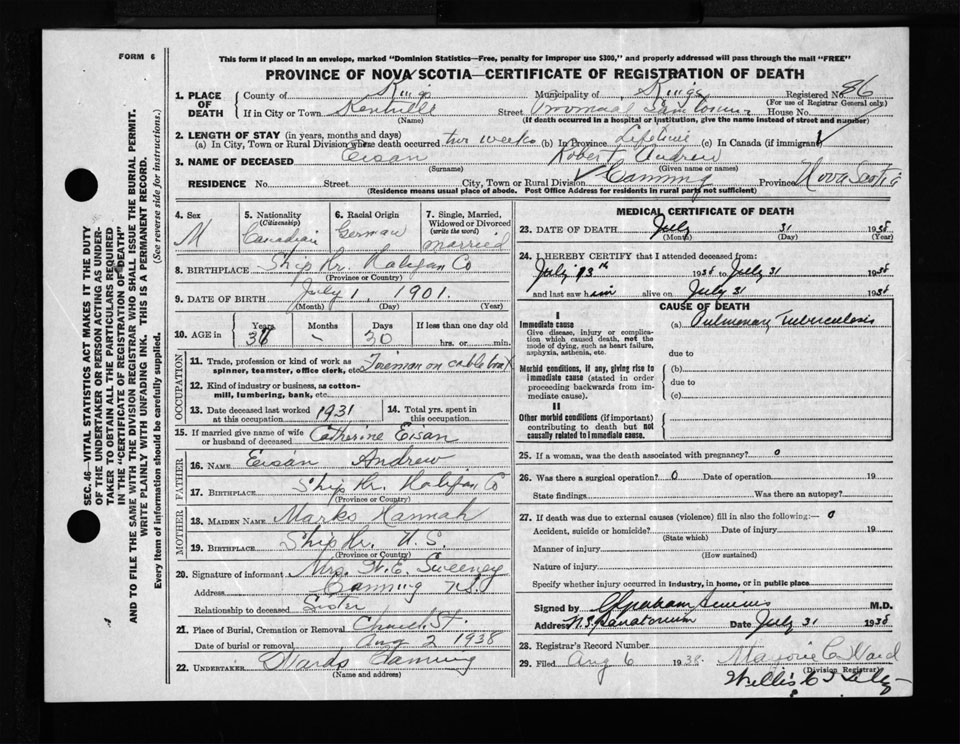 FORM 6
This form if placed in an envelope, marked "Dominion Statistics—Free, penalty for improper use $300," and properly addressed will pass through the mail "FREE"
PROVINCE OF NOVA SCOTIA—CERTIFICATE OF REGISTRATION OF DEATH
1. PLACE OF DEATH
County of Kings Municipality of Kings Registered No. 86
(For use of Registrar General only.)
If in City or Town Kentville Street House No.
(Name) (If death occurred in a hospital or institution, give the name instead of street and number)
2. LENGTH OF STAY (in years, months and days)
(a) In City, Town or Rural Division where death occurred two weeks (b) In Province Lifetime (c) In Canada (if immigrant)
3. NAME OF DECEASED Eisan Robert Andrew
(Surname) (Given name or names)
RESIDENCE No. Street City, Town or Rural Division Canning Province Nova Scotia
(Residence means usual place of abode. Post Office Address for residents in rural parts not sufficient)
SEC. 46—VITAL STATISTICS ACT MAKES IT THE DUTY
OF THE UNDERTAKER OR PERSON ACTING AS UNDER-
TAKER TO OBTAIN ALL THE PARTICULARS REQUIRED
IN THE "CERTIFICATE OF REGISTRATION OF DEATH"
AND TO FILE THE SAME WITH THE DIVISION REGISTRAR WHO SHALL ISSUE THE BURIAL PERMIT.
WRITE PLAINLY WITH UNFADING INK. THIS IS A PERMANENT RECORD.
Every item of information should be carefully supplied. (See reverse side for instructions.)
4. Sex M
5. Nationality (Citizenship) Canadian
6. Racial Origin German
7. Single, Married, Widowed or Divorced (write the word) married
8. BIRTHPLACE Ship Hr. Halifax Co
(Province or Country)
9. DATE OF BIRTH July 1, 1901.
(Month) (Day) (Year)
10. AGE in Years Months Days If less than one day old
— 30 hrs. or min.
OCCUPATION
11. Trade, profession or kind of work as spinner, teamster, office clerk, etc. Fireman on cable boat
12. Kind of industry or business, as cotton-mill, lumbering, bank, etc.
13. Date deceased last worked at this occupation 1931
14. Total yrs. spent in this occupation
15. If married give name of wife or husband of deceased Catherine Eisan
FATHER
16. NAME Eisan Andrew
17. BIRTHPLACE Ship Hr. Halifax Co
(Province or Country)
MOTHER
18. MAIDEN NAME Marks Hannah
19. BIRTHPLACE Ship Hr. N.S.
(Province or Country)
20. Signature of informant Mrs. H. E. Sweeney
Address Canning N.S.
Relationship to deceased Sister
21. Place of Burial, Cremation or Removal
Date of burial or removal Aug 2 1938
22. UNDERTAKER Wards Canning
(Name and address)
MEDICAL CERTIFICATE OF DEATH
23. DATE OF DEATH July 31 1938
(Month) (Day) (Year)
24. I HEREBY CERTIFY that I attended deceased from:
July 13th 1938 to July 31 1938
and last saw him alive on July 31 1938
CAUSE OF DEATH
I
Immediate cause (a) Pulmonary Tuberculosis
Give disease, injury or complication which caused death, not the mode of dying, such as heart failure, asphyxia, asthenia, etc.
due to
Morbid conditions, if any, giving rise to immediate cause (stated in order proceeding backwards from immediate cause).
(b)
due to
(c)
II
Other morbid conditions (if important) contributing to death but not causally related to immediate cause.
25. If a woman, was the death associated with pregnancy? 0
26. Was there a surgical operation? 0 Date of operation 19
State findings Was there an autopsy?
27. If death was due to external causes (violence) fill in also the following:— 0
Accident, suicide or homicide? Date of injury 19
(State which)
Manner of injury
(How sustained)
Nature of injury
Specify whether injury occurred in industry, in home, or in public place
Signed by M.D.
Address N.S. Sanatorium Date July 31 1938
28. Registrar's Record Number
29. Filed Aug 6 1938. Marjorie C. Ward
(Division Registrar)